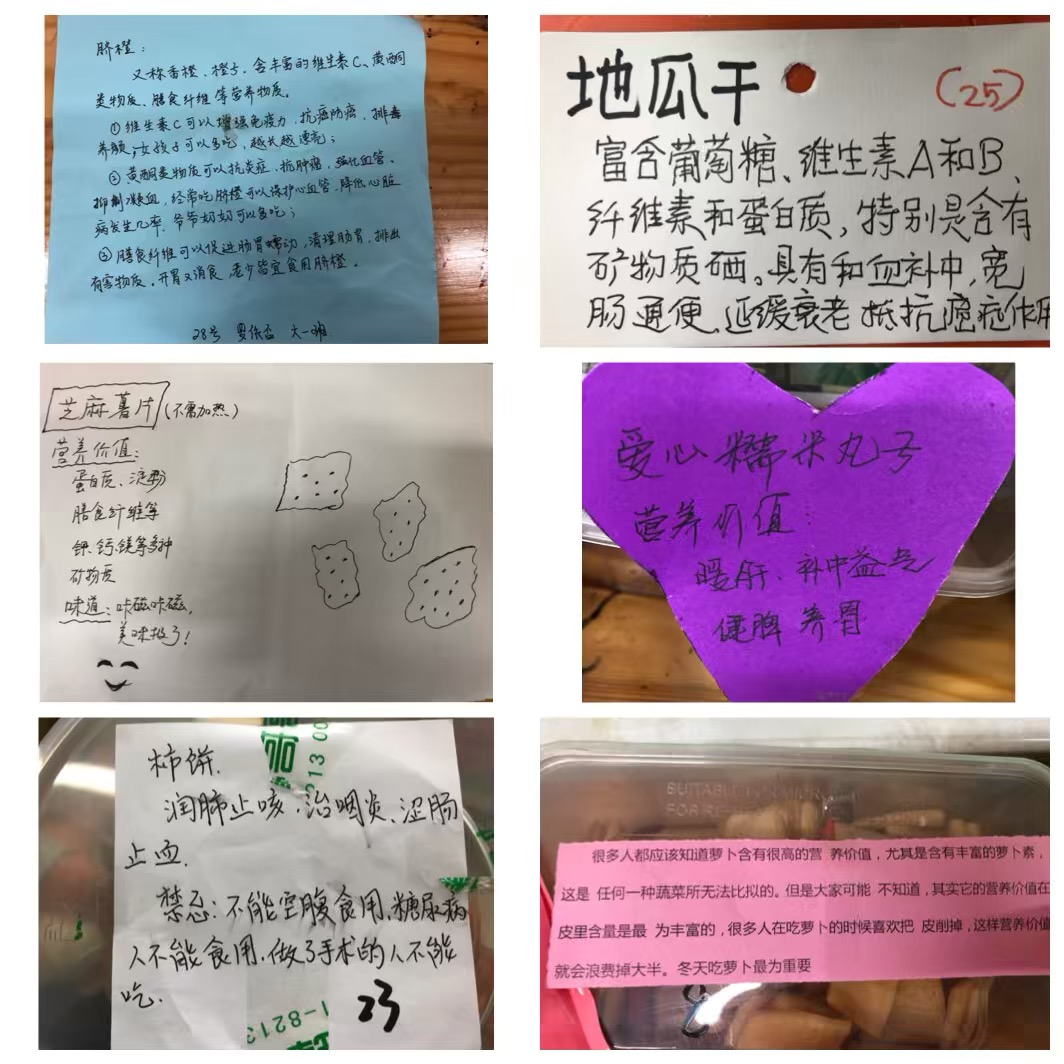 脐橙：
又称香橙、橙子，含丰富的维生素C、黄酮
类物质、膳食纤维等营养物质。
①维生素C可以增强免疫力，抗癌防癌，排毒
养颜，女孩子可以多吃，越长越漂亮；
②黄酮类物质可以抗炎症，抗肿瘤，强化血管、
抑制凝血，经常吃脐橙可以保护心血管，降低心脏
病发生几率，爷爷奶奶可以多吃；
③膳食纤维可以促进肠胃蠕动，清理肠胃，排出
有害物质。开胃又消食，老少皆宜食用脐橙。
28号
地瓜干
(25)
富含葡萄糖、维生素A和B、
纤维素和蛋白质，特别是含有
矿物质硒。具有和血补中，宽
肠通便、延缓衰老 抵抗癌症作用
芝麻薯片(不需加热)
营养价值：
蛋白质、淀粉
膳食纤维等
钾、钙、镁等多种
矿物质
味道：咔磁咔磁，
美味极了！
爱心糯米丸号
营养价值：
暖肝、补中益气
健脾 养胃
柿饼.
润肺止咳、治咽炎、涩肠
止血.
禁忌：不能空腹食用，糖尿病
人不能食用，做了手术的人不能
吃.
23
213 00
1-8213
SUITABLE
FOR
很多人都应该知道萝卜含有很高的营 养价值，尤其是含有丰富的萝卜素，
这是 任何一种蔬菜所无法比拟的。但是大家可能 不知道，其实它的营养价值在
皮里含量是最 为丰富的，很多人在吃萝卜的时候喜欢把 皮削掉，这样营养价值
就会浪费掉大半。冬天吃萝卜最为重要